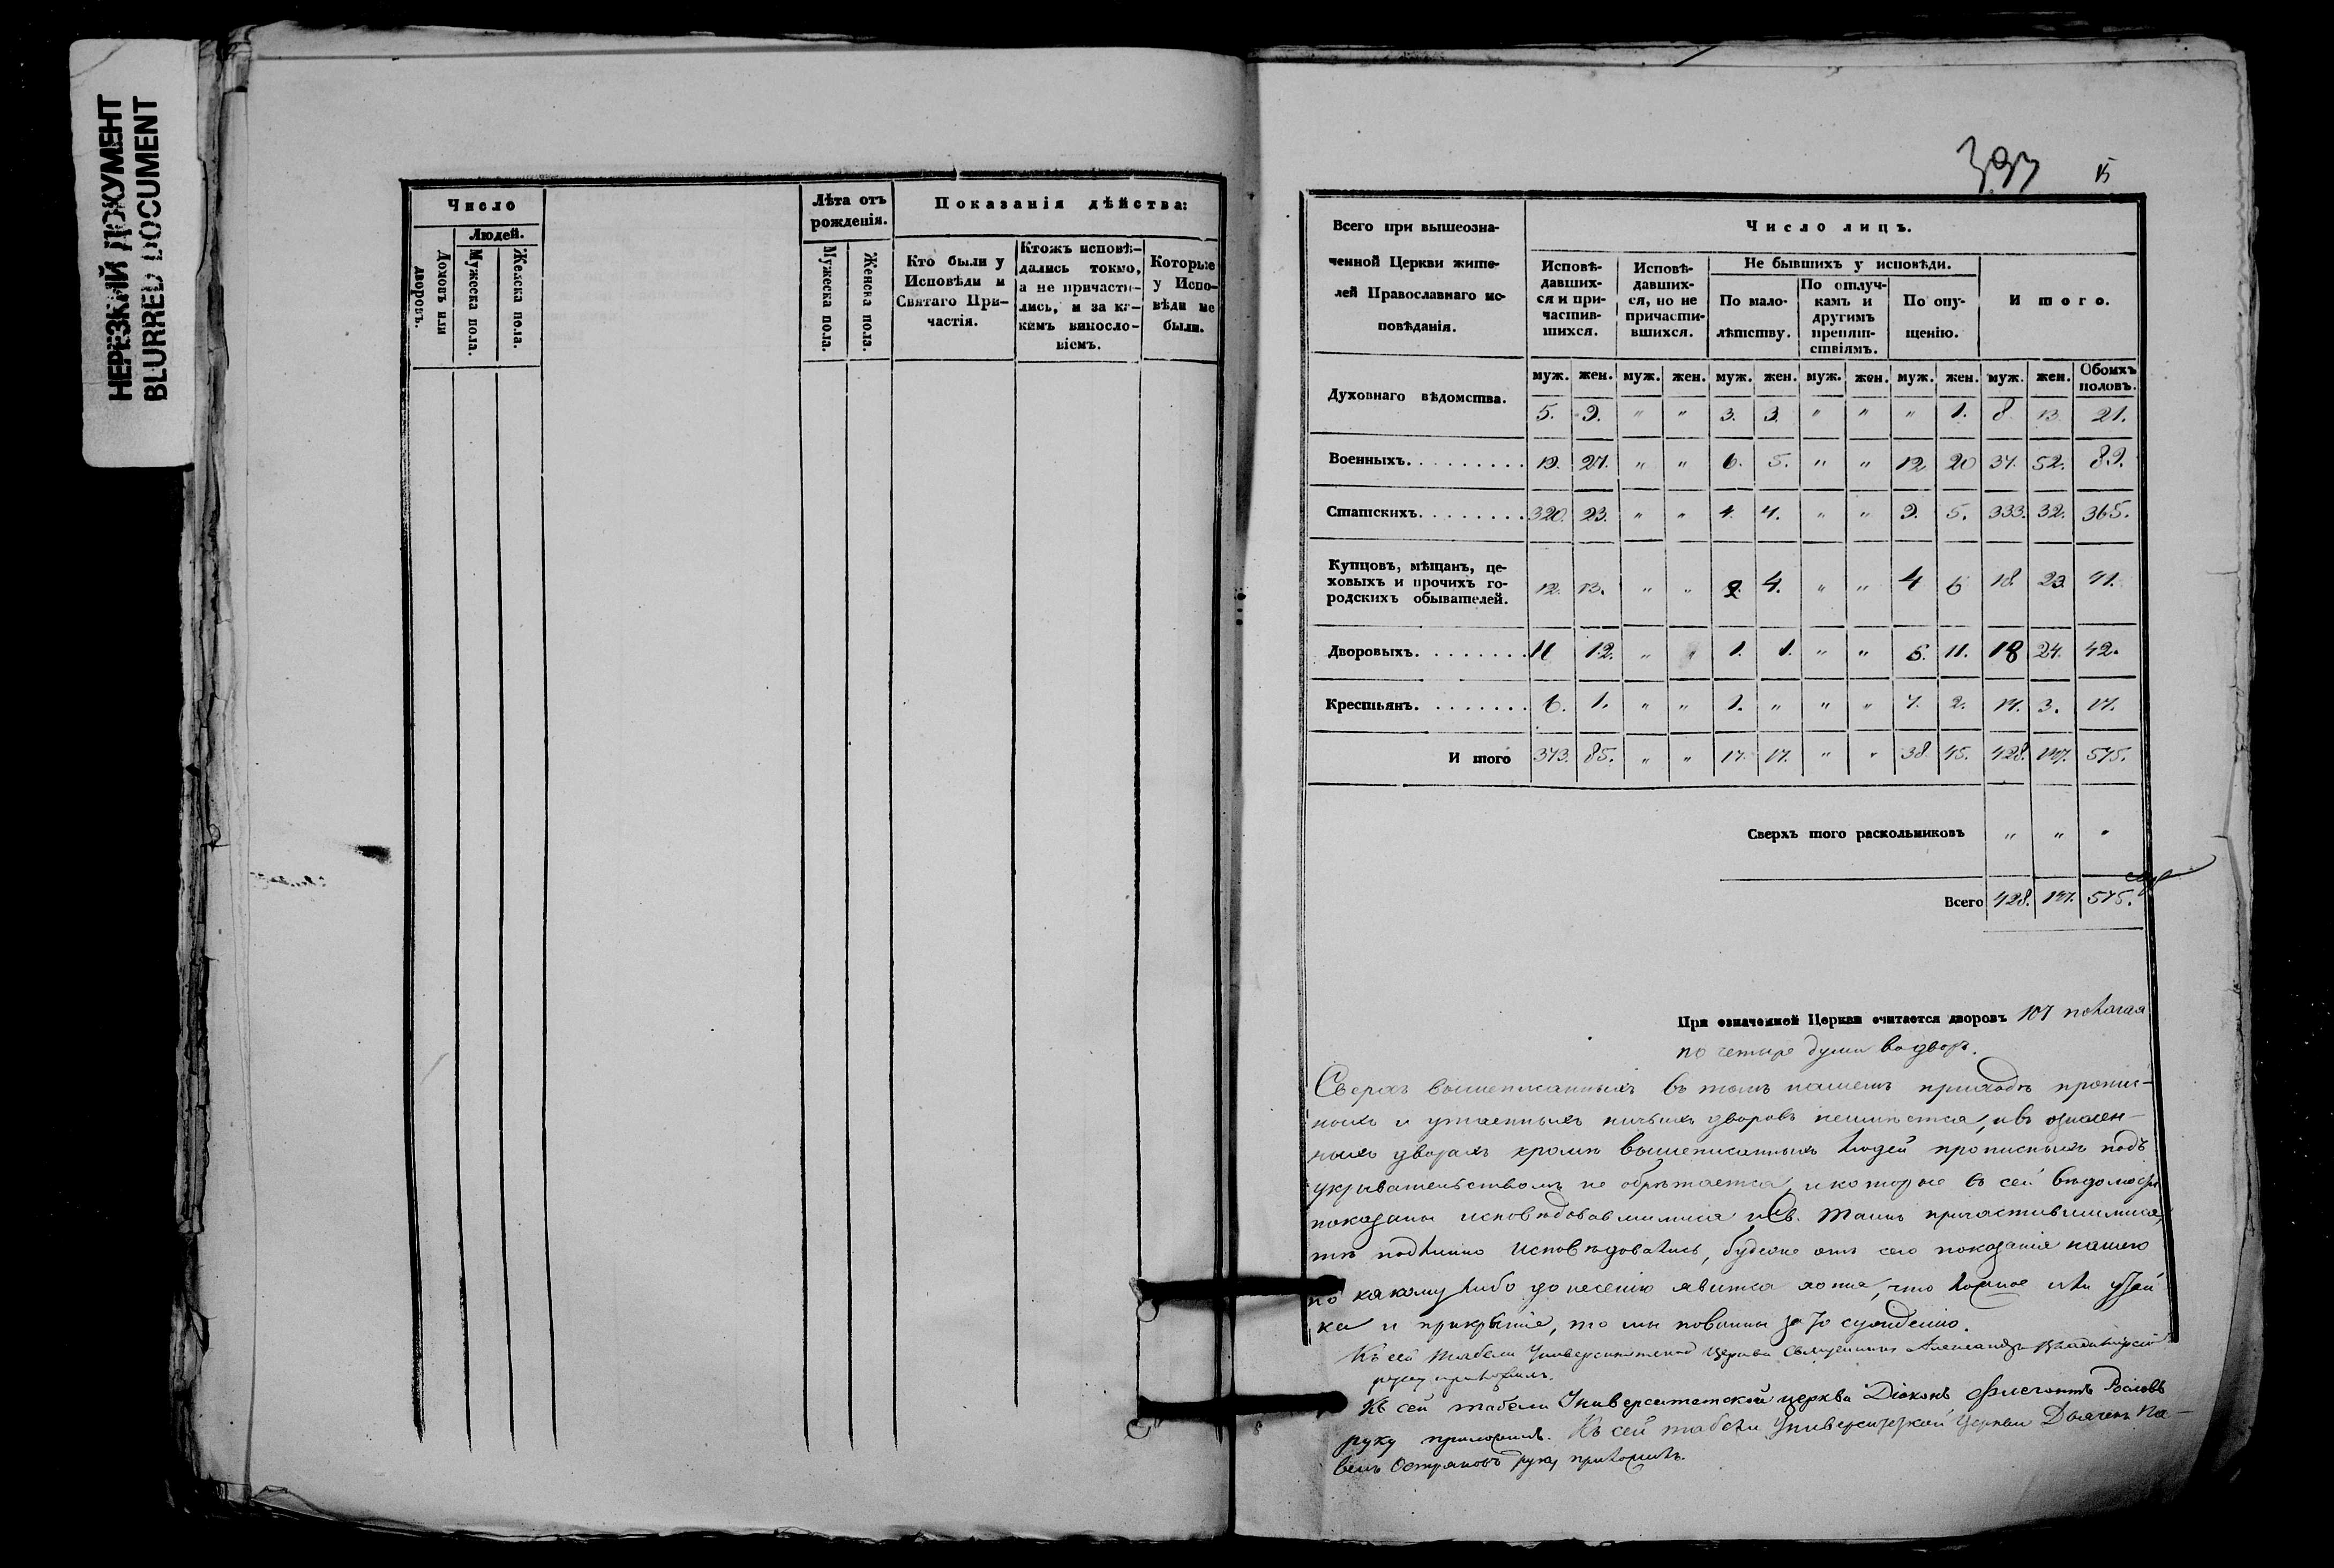 НЕРЕЗКИЙ ДОКУМЕНТ
BLURRED DOCUMENT
Число
Людей.
Домовъ или дворовъ.
Мужеска пола.
Женска пола.
Лѣта отъ
рожденія.
Мужеска пола.
Женска пола.
Показанія дѣйства:
Кто были у
Исповѣди и
Святаго При-
частія.
Ктожъ исповѣ-
дались токмо,
а не причасти-
лись, и за ка-
кимъ винословіемъ.
Которые
у Испо-
вѣди не
были.
393 15
Всего при вышеозна-
ченной Церкви жите-
лей Православнаго ис-
повѣданія.
Число лицъ.
Исповѣ-
давших-
ся и при-
частив-
шихся.
Исповѣ-
давших-
ся, но не
причасти-
вшихся.
Не бывшихъ у исповѣди.
По мало-
лѣтству.
По отлуч-
камъ и
другимъ
препят-
ствіямъ.
По опу-
щенію.
И того.
муж. жен. муж. жен. муж. жен. муж. жен. муж. жен. муж. жен. Обоихъ половъ.
Духовнаго вѣдомства. 5. 9. " " 3. 3. " " " 1. 8. 13. 21.
Военныхъ. 19. 27. " " 6. 5. " " 12. 20 37. 52. 89.
Статскихъ. 320. 23. " " 4. 4. " " 9. 5. 333. 32. 365.
Купцовъ, мѣщанъ, це-
ховыхъ и прочихъ го-
родскихъ обывателей. 12. 13. " " 2. 4. " " 4 6 18. 23. 41.
Дворовыхъ. 11 12. " " 1. 1. " " 6. 11. 18 24. 42.
Крестьянъ. 6. 1. " " 1. " " " 7. 2. 14. 3. 17.
И того 373. 85. " " 17. 17. " " 38. 45. 428. 147. 575.
Сверхъ того раскольниковъ " " "
Всего 428. 147. 575.
При означенной Церкви считается дворовъ 107 полагая
по четыре души водворъ.
Сверхъ вышеписанныхъ въ томъ нашемъ приходѣ пропис-
ныхъ и утаенныхъ ничьихъ дворовъ неимѣется, ивъ означен-
ныхъ дворахъ кромѣ вышеписанныхъ людей прописныхъ подъ
укрывательствомъ не обрѣтается, икоторые въ сей вѣдомости
показаны исповѣдовавшимися иСв. Таинъ причастившимися,
тѣ подлинно исповѣдовались, будеже отъ сего показанія нашего
по какому либо донесенію явится хотя, что ложное или утай
ка и прикрытіе, то мы повинны за то сужденію.
Къ сей табели Университетской церкви Священникъ Александръ Владимірскій
руку приложилъ.
Къ сей табели Университетской церкви Діаконъ Флегонтъ
руку приложилъ. Къ сей табели Университетской церкви Дьячекъ Па-
велъ руку приложилъ.